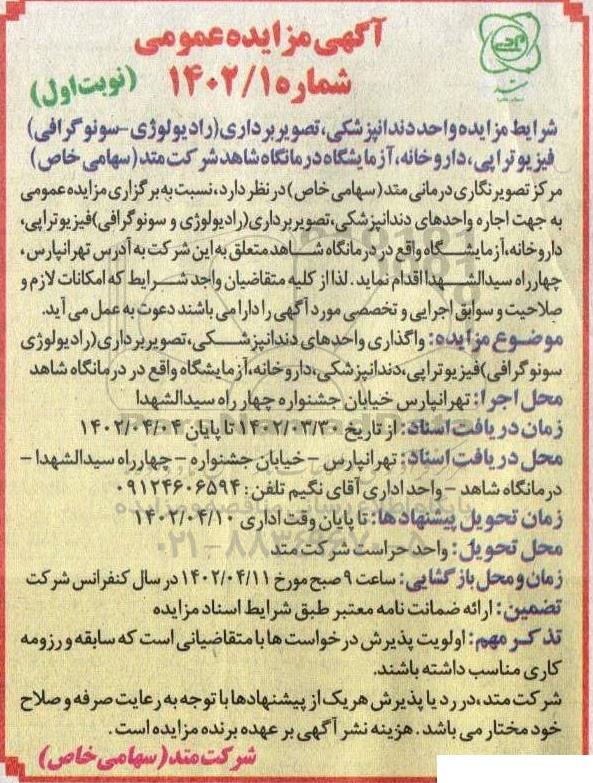 آگهی مزایده عمومی
شماره ۱۴۰۲/۱ (نوبت اول)
شرایط مزایده واحد دندانپزشکی، تصویربرداری (رادیولوژی-سونوگرافی)
فیزیوتراپی، داروخانه، آزمایشگاه درمانگاه شاهد شرکت متد (سهامی خاص)
مرکز تصویرنگاری درمانی متد (سهامی خاص) در نظر دارد، نسبت به برگزاری مزایده عمومی
به جهت اجاره واحدهای دندانپزشکی، تصویربرداری (رادیولوژی و سونوگرافی) فیزیوتراپی،
داروخانه، آزمایشگاه واقع در درمانگاه شاهد متعلق به این شرکت به آدرس تهرانپارس،
چهارراه سیدالشهدا اقدام نماید. لذا از کلیه متقاضیان واجد شرایط که امکانات لازم و
صلاحیت و سوابق اجرایی و تخصصی مورد آگهی را دارا می باشند دعوت به عمل می آید.
موضوع مزایده: واگذاری واحدهای دندانپزشکی، تصویربرداری (رادیولوژی
سونوگرافی) فیزیوتراپی، دندانپزشکی، داروخانه، آزمایشگاه واقع در درمانگاه شاهد
محل اجرا: تهرانپارس خیابان جشنواره چهار راه سیدالشهدا
زمان دریافت اسناد: از تاریخ ۱۴۰۲/۰۳/۳۰ تا پایان ۱۴۰۲/۰۴/۰۴
محل دریافت اسناد: تهرانپارس - خیابان جشنواره - چهارراه سیدالشهدا -
درمانگاه شاهد - واحد اداری آقای نگیم تلفن: ۰۹۱۲۴۶۰۶۵۹۴
زمان تحویل پیشنهادها: تا پایان وقت اداری ۱۴۰۲/۰۴/۱۰
محل تحویل: واحد حراست شرکت متد
زمان و محل بازگشایی: ساعت ۹ صبح مورخ ۱۴۰۲/۰۴/۱۱ در سال کنفرانس شرکت
تضمین: ارائه ضمانت نامه معتبر طبق شرایط اسناد مزایده
تذکر مهم: اولویت پذیرش درخواست ها با متقاضیانی است که سابقه و رزومه
کاری مناسب داشته باشند.
شرکت متد، در رد یا پذیرش هریک از پیشنهادها با توجه به رعایت صرفه و صلاح
خود مختار می باشد. هزینه نشر آگهی بر عهده برنده مزایده است.
شرکت متد (سهامی خاص)